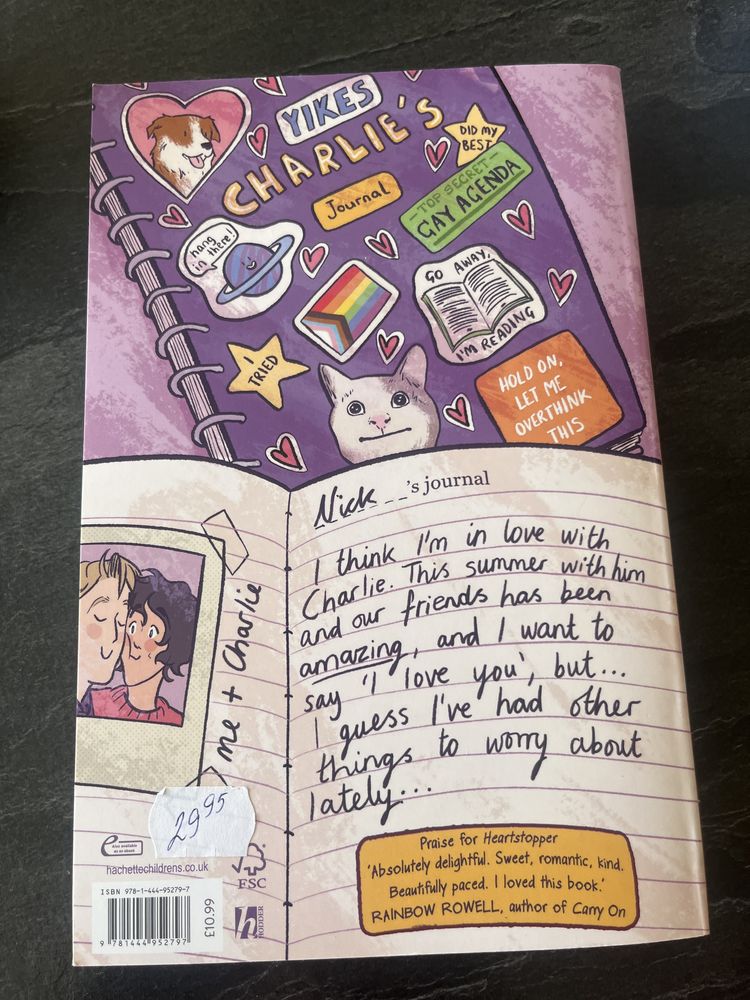 YIKES
CHARLIE'S
Journal
DID MY
BEST
-TOP SECRET-
GAY AGENDA
hang
in there!
GO AWAY,
I'M READING
I
TRIED
HOLD ON,
LET ME
OVERTHINK
THIS
Nick's journal
I think I'm in love with
Charlie. This summer with him
and our friends has been
amazing, and I want to
say 'I love you', but...
I guess I've had other
things to worry about
lately...
me + Charlie
29 95
e
Also available
as an ebook
hachettechildrens.co.uk
ISBN 978-1-444-95279-7
9 781444 952797
£10.99
FSC
h
HODDER
Praise for Heartstopper
'Absolutely delightful. Sweet, romantic, kind.
Beautifully paced. I loved this book.'
RAINBOW ROWELL, author of Carry On